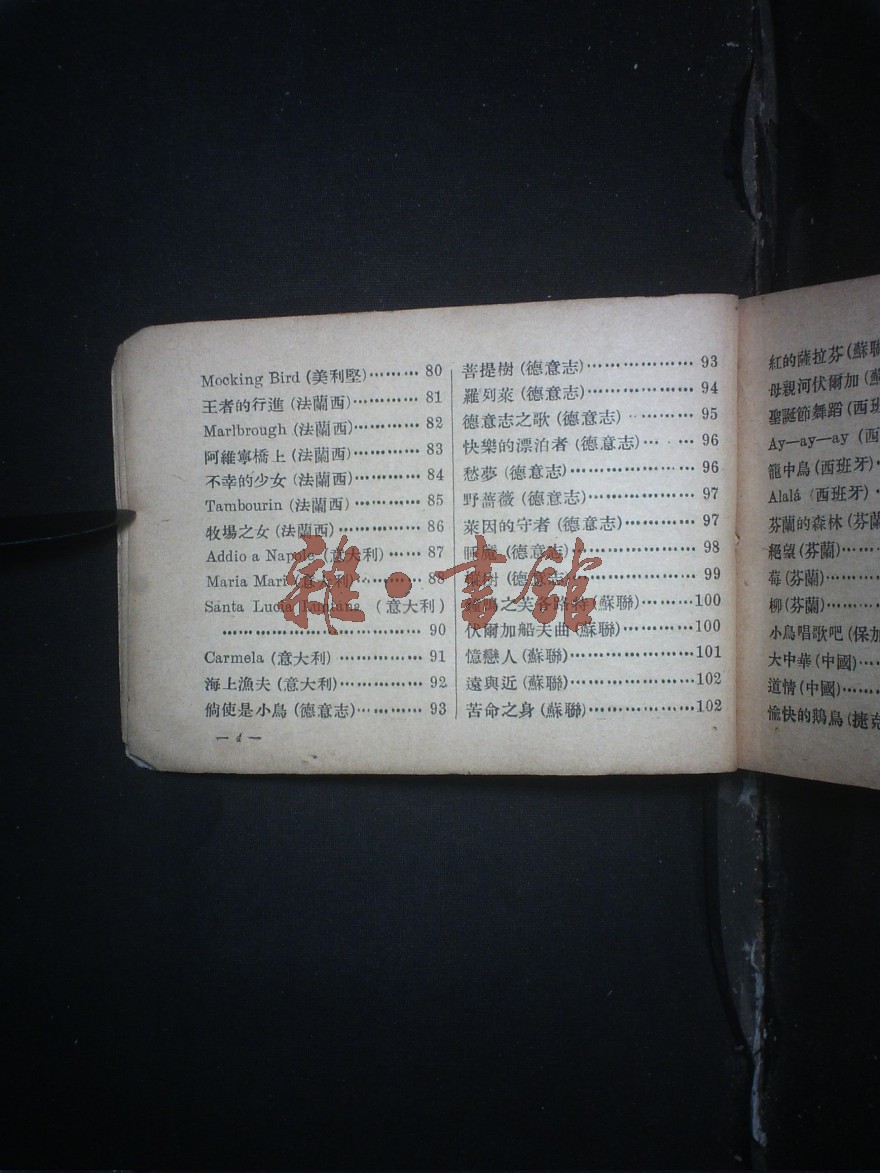 Mocking Bird (美利堅)……… 80
王者的行進 (法蘭西)………… 81
Marlbrough (法蘭西)………… 82
阿維寧橋上 (法蘭西)………… 83
不幸的少女 (法蘭西)………… 84
Tambourin (法蘭西)………… 85
牧場之女 (法蘭西)…………… 86
Addio a Napole (意大利)…… 87
Maria Mari (意大利)………… 88
Santa Lucia (意大利)
………………………………… 90
Carmela (意大利) …………… 91
海上漁夫 (意大利)…………… 92
倘使是小鳥 (德意志)………… 93
— 4 —
菩提樹 (德意志)……………… 93
羅列萊 (德意志)……………… 94
德意志之歌 (德意志) ………… 95
快樂的漂泊者 (德意志)… … 96
愁夢 (德意志)………………… 96
野薔薇 (德意志)……………… 97
萊因的守者 (德意志)………… 97
(德意志)………………… 98
樹 (德意志)………………… 99
之芙 路特 (蘇聯)………100
伏爾加船夫曲 (蘇聯)…………100
憶戀人 (蘇聯)…………………101
遠與近 (蘇聯)…………………102
苦命之身 (蘇聯)………………102
紅的薩拉芬 (蘇聯
母親河伏爾加 (
聖誕節舞蹈 (西班
Ay—ay—ay (西
籠中鳥 (西班牙)…
Alalá (西班牙)…
芬蘭的森林 (芬蘭
絕望 (芬蘭)……
莓 (芬蘭)………
柳 (芬蘭)………
小鳥唱歌吧 (保加
大中華 (中國)……
道情 (中國)……
愉快的鵝鳥 (捷克
雜·書館